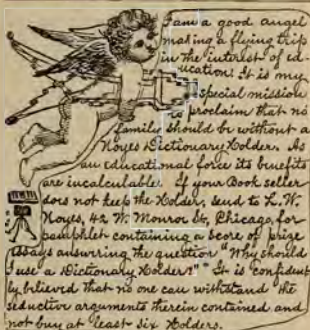 I am a good angel
making a flying trip
in the interest of ed-
ucation. It is my
special mission
to proclaim that no
family should be without a
Noyes Dictionary Holder. As
an educational force its benefits
are incalculable. If your Book seller
does not keep the Holder, send to L. W.
Noyes, 42 W. Monroe St, Chicago, for
pamphlet containing a score of prize
essays answering the question "Why should
I use a Dictionary Holder?" It is confident
ly believed that no one can withstand the
seductive arguments therein contained and
not buy at least six Holders.